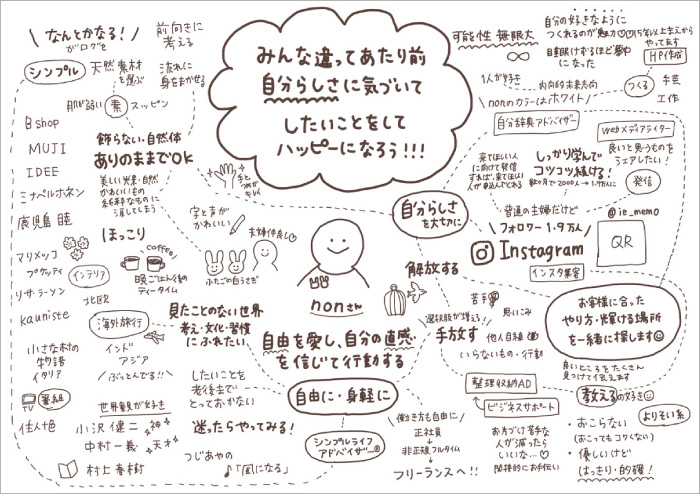 みんな違ってあたり前
自分らしさに気づいて
したいことをして
ハッピーになろう!!!
なんとかなる!
がログセ
前向きに
考える
シンプル
天然素材
を選ぶ
流れに
身をまかせる
肌が弱い
素
スッピン
B shop
MUJI
IDEE
ミナペルホネン
鹿児島 睦
飾らない・自然体
ありのままでOK
美しい光景・自然
かわいいもの
純粋なものに
涙してしまう
手と
つめが
キレイ
字と声が
かわいい
夫婦仲良し
ふたごの白うさぎ
ほっこり
coffee!
晩ごはん後の
ティータイム
マリメッコ
プケッティ
インテリア
リサ・ラーソン
北欧
kauniste
海外旅行
見たことのない世界
考え・文化・習慣
にふれたい
小さな村の
物語
イタリア
インド
アジア
ぶっとんでる!!
TV
番組
佳人十色
世界観が好き
小沢健二
神
中村一義
天才
村上春樹
したいことを
老後まで
とっておかない
迷ったらやってみる!
つじあやの
♪「風になる」
nonさん
自由を愛し、自分の直感
を信じて行動する
自由に・身軽に
シンプルライフ
アドバイザー®
働き方も自由に
正社員
↓
非正規フルタイム
↓
フリーランスへ!!
可能性 無限大
∞
自分の好きなように
つくれるのが魅力♡♡
15年以上まえから
やってます
目標にするほど夢中
になった
HP作成
1人が好き
内向的未来志向
nonのカラーはホワイト
つくる
手芸
工作
自分辞典アドバイザー
webメディアライター
良いと思うものを
シェアしたい!
発信
来てほしい人
に向けて発信
すれば、来てほしい
人が申込んでくれる
しっかり学んで
コツコツ続ける!
数ヶ月で2000人→1.9万に
自分らしさ
を大切に
普通の主婦だけど
フォロワー1.9万人
@ie_memo
QR
Instagram
インスタ集客
解放する
選択肢が増える
手放す
苦手
思いこみ
他人目線
いらないもの・行動
お客様に合った
やり方・輝ける場所
を一緒に探します
良いところをたくさん
見つけて伝えます
整理収納AD
ビジネスサポート
お片づけ苦手な
人が減ったら
いいな…♡
間接的にお手伝い
教えるの好き
よりそい系
・おこらない
(おこってもコワくない)
・優しいけど
はっきり・的確!